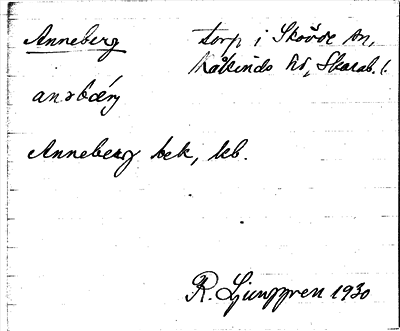 Anneberg torp i Skövde sn,
Kåkinds hd, Skarab. l.
anəbærj
Anneberg bek, kb.
R. Ljunggren 1930